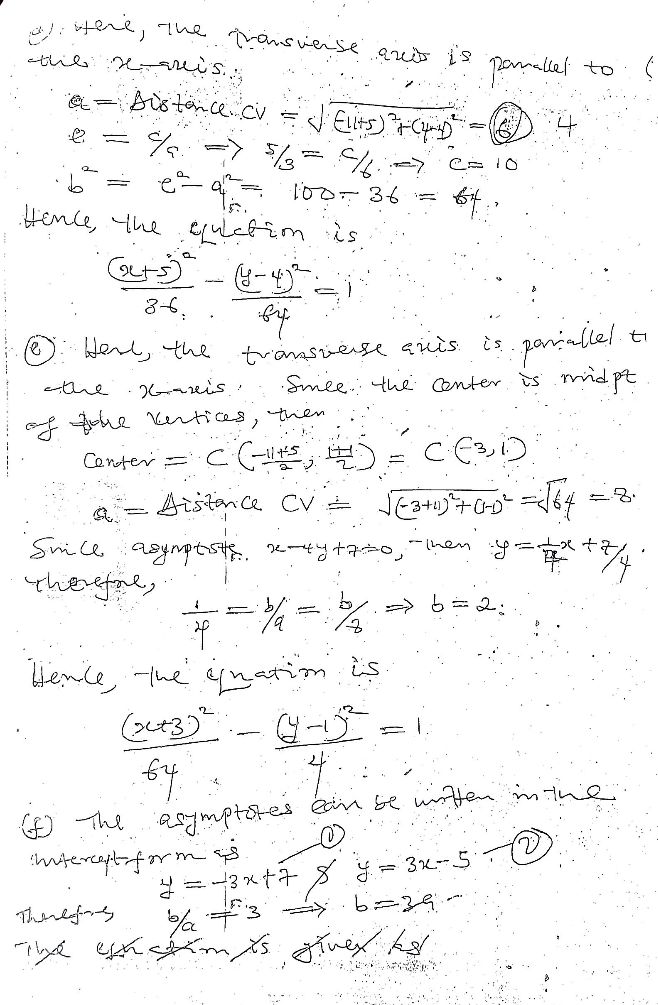 d) Here, the transverse axis is parallel to
the x-axis.
a = Distance CV = √(-11+5)²+(4-4)² = 6 4
e = c/a => 5/3 = c/6 => c = 10
b² = c² - a² = 100 - 36 = 64.
Hence, the equation is
(x+5)²/36 - (y-4)²/64 = 1
(e) Here, the transverse axis is parallel to
the x-axis. Since the center is midpt
of the vertices, then
Center = C(-11+5/2, 1+1/2) = C(-3, 1)
a = Distance CV = √(-3+11)²+(1-1)² = √64 = 8.
Since asymptote x-4y+7=0, then y = 1/4x + 7/4
Therefore,
1/4 = b/a = b/8 => b = 2.
Hence, the equation is
(x+3)²/64 - (y-1)²/4 = 1
(f) The asymptotes can be written in the
intercept form as
y = -3x+7 (1) & y = 3x-5 (2)
Therefore b/a = 3 => b = 3a
The equation is given by